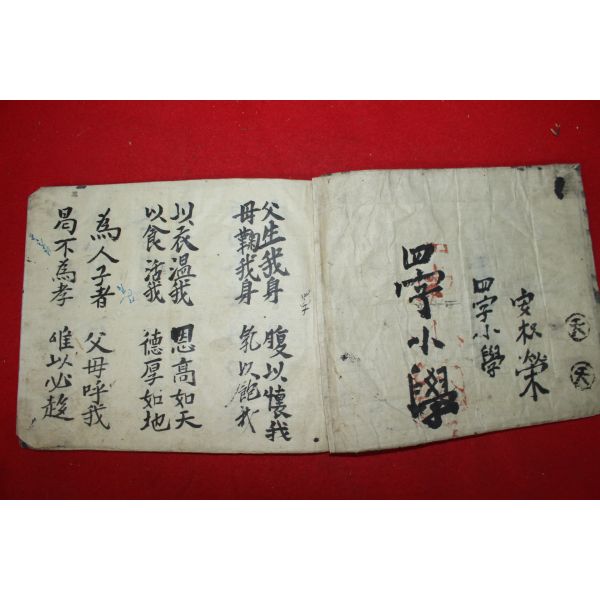 四字小學
四字小學
父生我身
母鞠我身
腹以懷我
氣以飽我
以衣温我
以食活我
恩高如天
德厚如地
為人子者
曷不為孝
父母呼我
唯以必趍